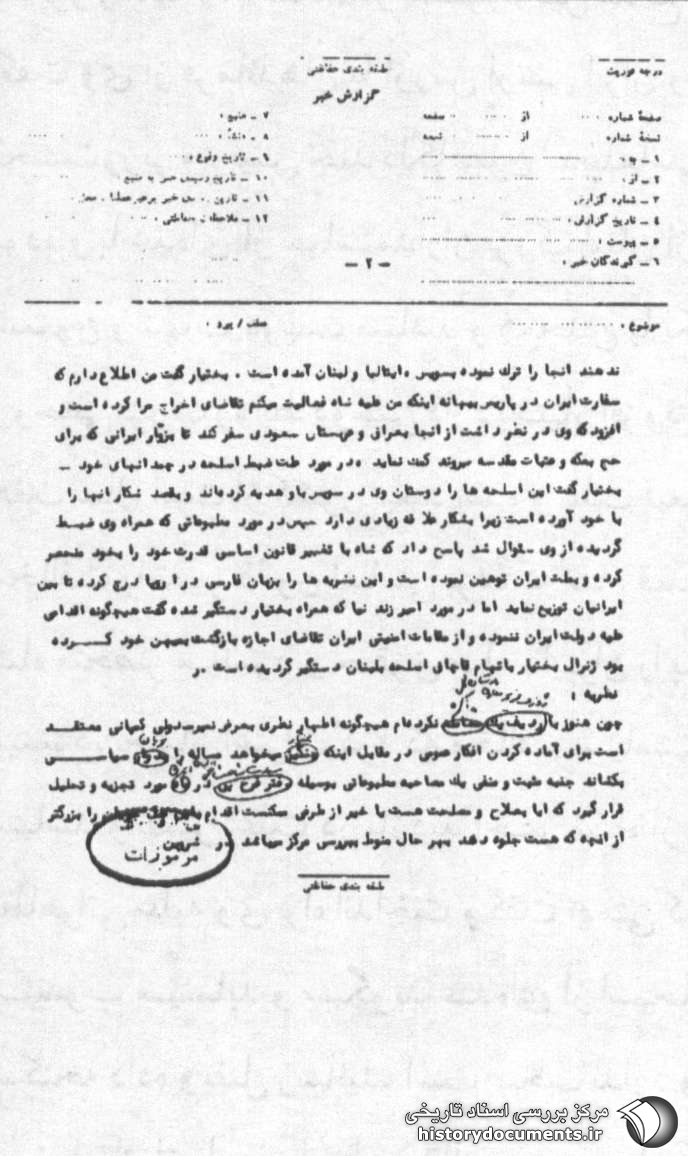 درجه فوریت
طبقه بندی حفاظتی
گزارش خبر
صفحهٔ شماره از صفحه
نسخهٔ شماره از نسخه
۱ ـ به :
۲ ـ از :
۳ ـ شماره گزارش
۴ ـ تاریخ گزارش :
۵ ـ پیوست :
۶ ـ گیرندگان خبر :
۷ ـ منبع :
۸ ـ منشأ :
۹ ـ تاریخ وقوع :
۱۰ ـ تاریخ رسیدن خبر به منبع
۱۱ ـ تاریخ رسیدن خبر برهبر عملیات
۱۲ ـ ملاحظات حفاظتی :
ـ ۲ ـ
موضوع :
ندهند انجا را ترك نموده بسویس ، ایتالیا و لبنان آمده است . بختیار گفت من اطلاع دارم که
سفارت ایران در پاریس ببهانه اینکه من علیه شاه فعالیت میکنم تقاضای اخراج مرا کرده است و
افزود که وی در نظر داشت از انجا بعراق و عربستان سعودی سفر کند تا بزوار ایرانی که برای
حج بمکه و عتبات مقدسه میروند کمك نماید . در مورد علت ضبط اسلحه در چمدانهای خود ـ
بختیار گفت این اسلحه ها را دوستان وی در سویس باو هدیه کرده‌اند و بقصد شکار انها را
با خود آورده است زیرا بشکار علاقه زیادی دارد سپس در مورد مطبوعاتی که همراه وی ضبط
گردیده از وی سئوال شد پاسخ داد که شاه با تغییر قانون اساسی قدرت خود را بخود منحصر
کرده و بملت ایران توهین نموده است و این نشریه ها را بزبان فارسی در اروپا درج کرده تا بین
ایرانیان توزیع نماید اما در مورد امیر زند نیا که همراه بختیار دستگیر شده گفت هیچگونه اقدامی
علیه دولت ایران ننموده و از مقامات امنیتی ایران تقاضای اجازه بازگشت بمیهن خود کرده
بود ژنرال بختیار باتهام قاچاق اسلحه بلبنان دستگیر گردیده است .ر
نظریه :
چون هنوز با ردیف یك نکرده‌ام هیچگونه اظهار نظری بعرض نمیرسد ولی کمپانی معتقد
است برای آماده کردن افکار عمومی در مقابل اینکه میخواهد مساله را سیاسی
بکشاند جنبه مثبت و منفی یك مصاحبه مطبوعاتی بوسیله در مورد تجزیه و تحلیل
قرار گیرد که ایا بصلاح و مصلحت هست یا خیر از طرفی ممکنست اقدام را بزرگتر
از انچه که هست جلوه دهد بهر حال منوط ببررسی مرکز میباشد
مرموزات
طبقه بندی حفاظتی
مرکز بررسی اسناد تاریخی
historydocuments.ir